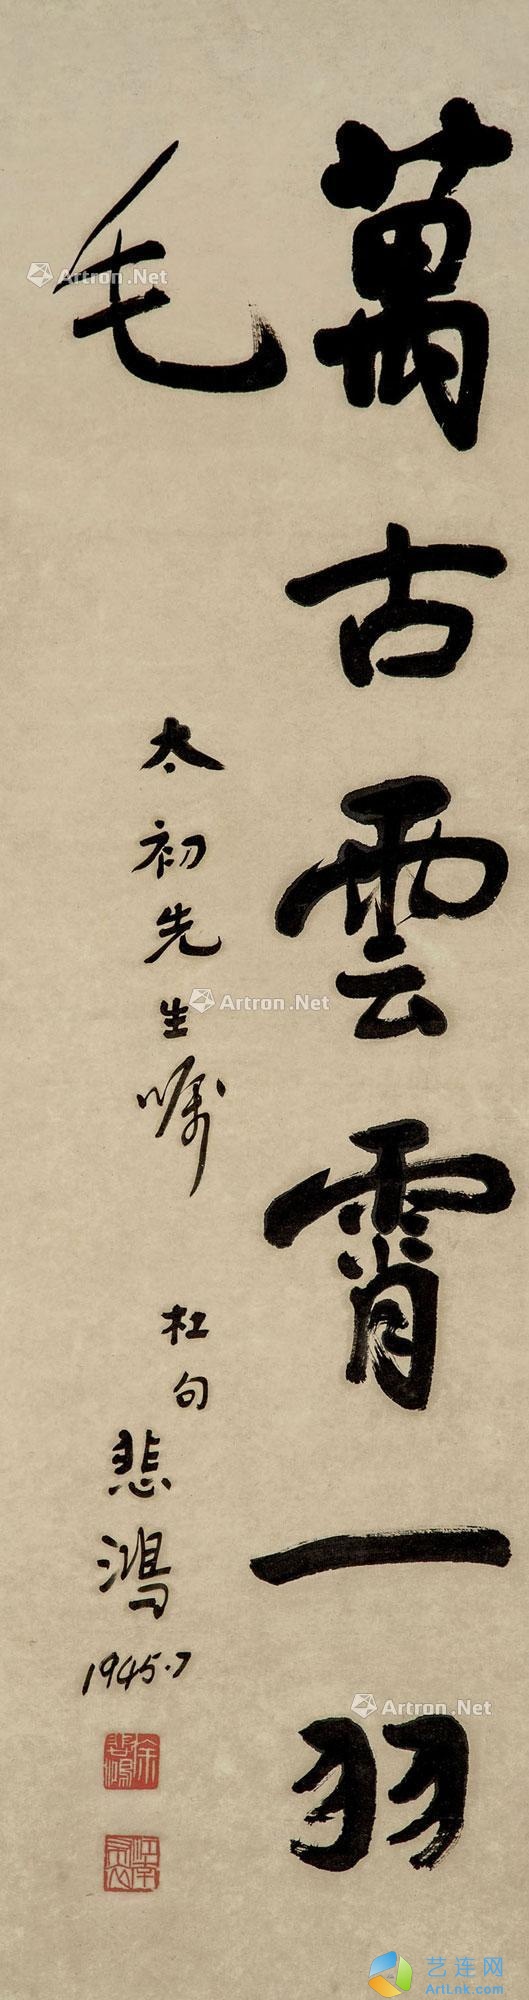 萬古雲霄一羽
毛
太初先生嘱
杜句
悲鴻
1945.7
徐悲鴻
Artron.Net
Artron.Net
Artron.Net
艺连网
ArtLnk.com